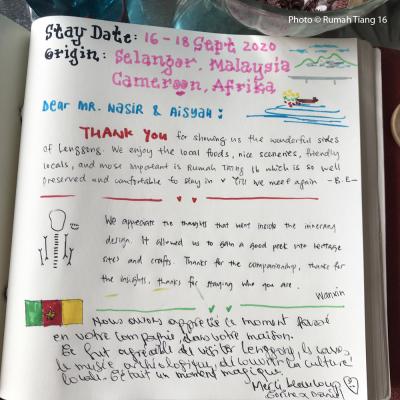 Photo © Rumah Tiang 16
Stay Date: 16 - 18 Sept 2020
Origin: Selangor, Malaysia
Cameroon, Afrika
Dear MR. Nasir & Aisyah :
THANK YOU for showing us the wonderful sides
of Lenggong. We enjoy the local foods, nice sceneries, friendly
locals, and most important is Rumah Tiang 16 which is so well
preserved and comfortable to stay in ♥ Till we meet again -B.E-
We appreciate the thoughts that went inside the
design. It allowed us to gain a good peek into heritage
sites and crafts. Thanks for the companionship, thanks for
the insights, thanks for staying who you are.
Wanxin
Nous avons apprécié ce moment passé
en votre compagnie, dans votre maison.
Ce fut agréable de visiter Lenggong, les caves,
le musée archéologique, découvrir la culture
locale. C'était un moment magique.
Merci beaucoup